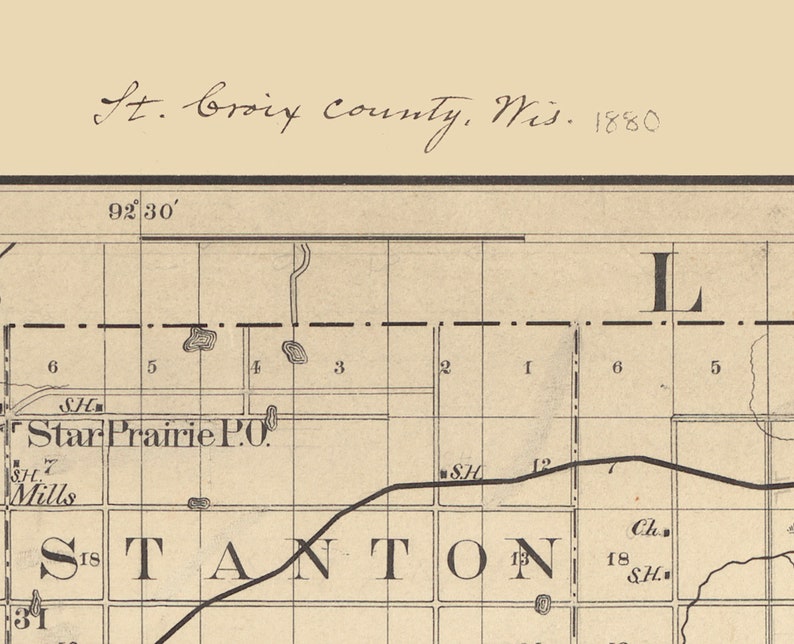 St. Croix county, Wis. 1880
92° 30′
L
6 5 4 3 2 1 6 5
S.H.
Star Prairie P.O.
S.H. 7 S.H. 12 7
Mills
Ch.
STANTON
18 13 18 S.H.
31